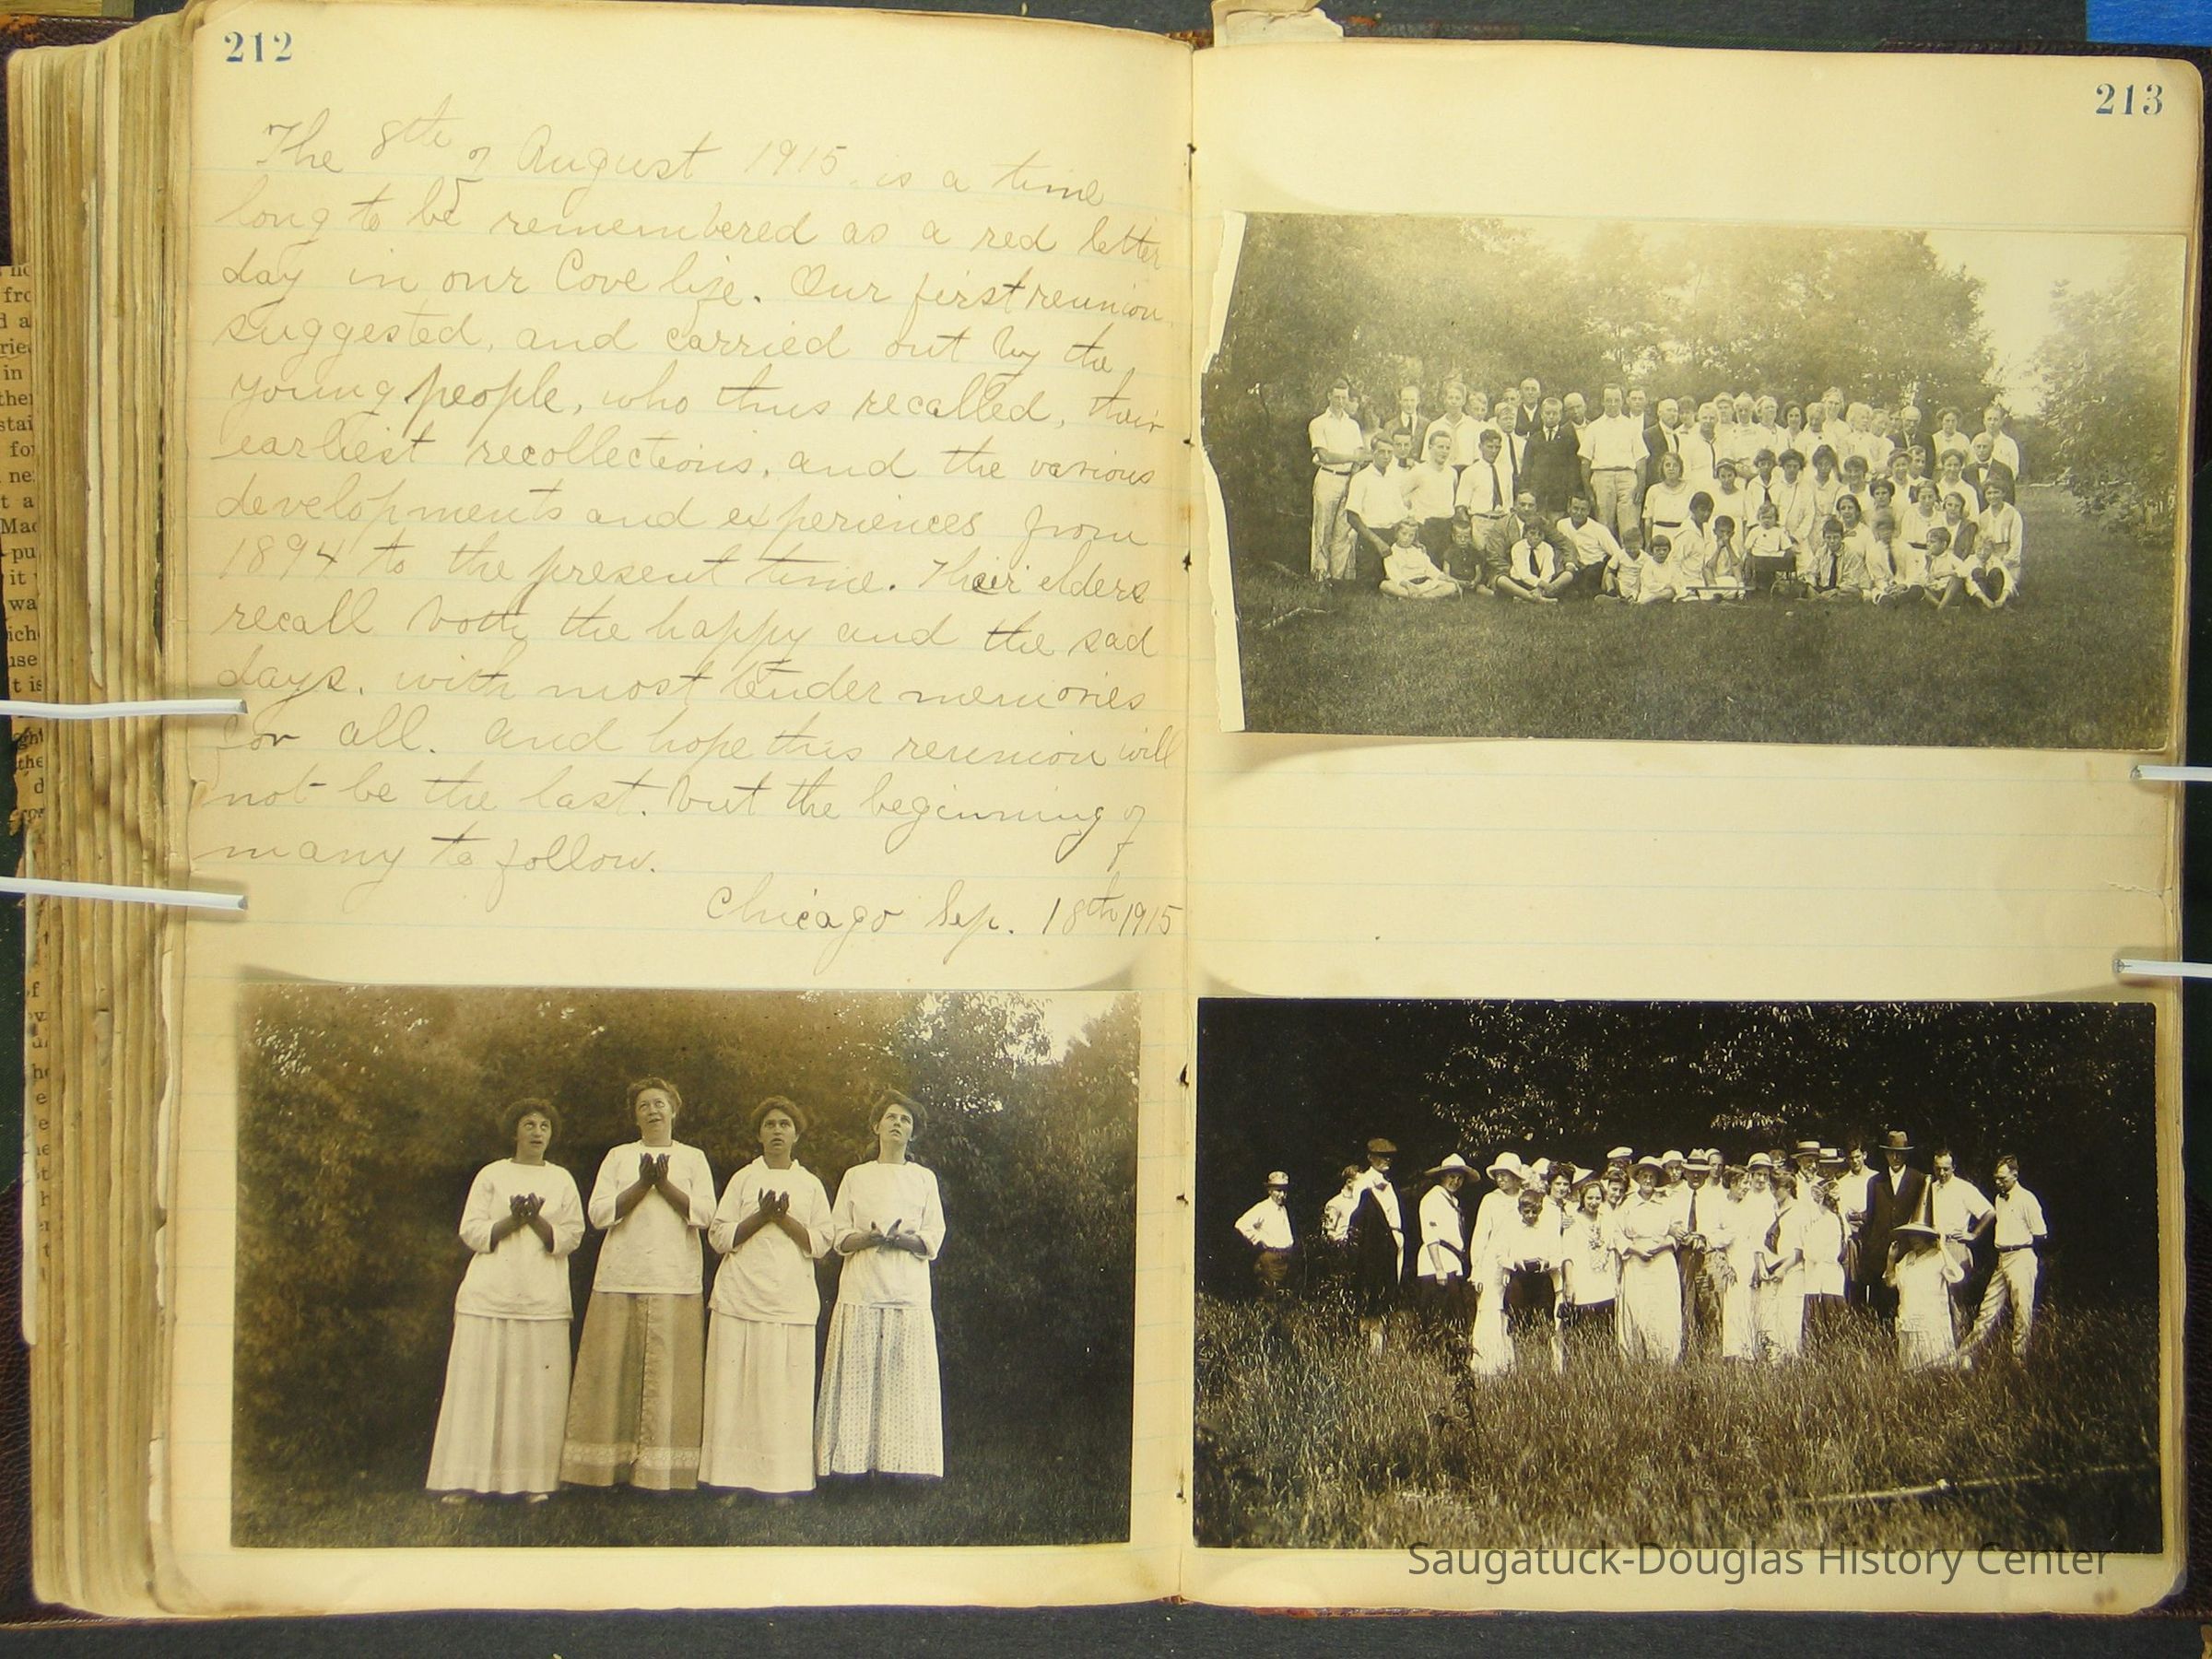 212
The 8th of August 1915 is a time
long to be remembered as a red letter
day in our Cove life. Our first reunion
suggested, and carried out by the
young people, who thus recalled, their
earliest recollections, and the various
developments and experiences from
1894 to the present time. Their elders
recall both the happy and the sad
days. with most tender memories
for all. and hope this reunion will
not be the last. but the beginning of
many to follow.
Chicago Sep. 18th 1915
213
Saugatuck-Douglas History Center